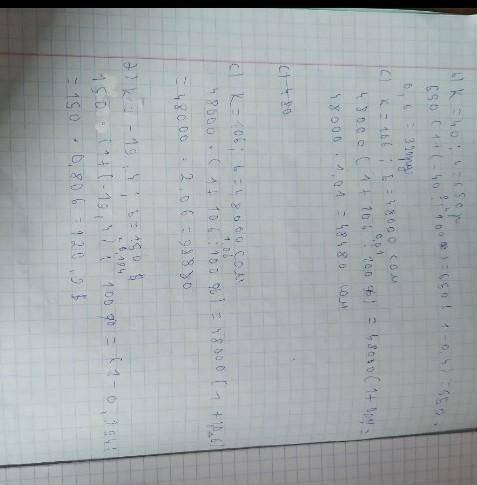 б) K = 40%; b = 650 р
650 (1 + (- 40 : 100%) = 650 (1 - 0,4) = 650 ·
0,6 = 390
c) K = 106; b = 48000 сом
48000 (1 + 106 : 100 %) = 48000 (1 +
48000 · 1,01 = 48480 сом
c) 480
c) K = 106; b = 48000 сом
48000 · (1 + 106 : 100 %) = 48000 (1 +
= 48000 · 2,06 = 98880
K = - 19,4; b = 150 g
150 · (1 + (- 19,4 : 100 %) = (1 - 0,194)
= 150 · 0,806 = 120,9 g